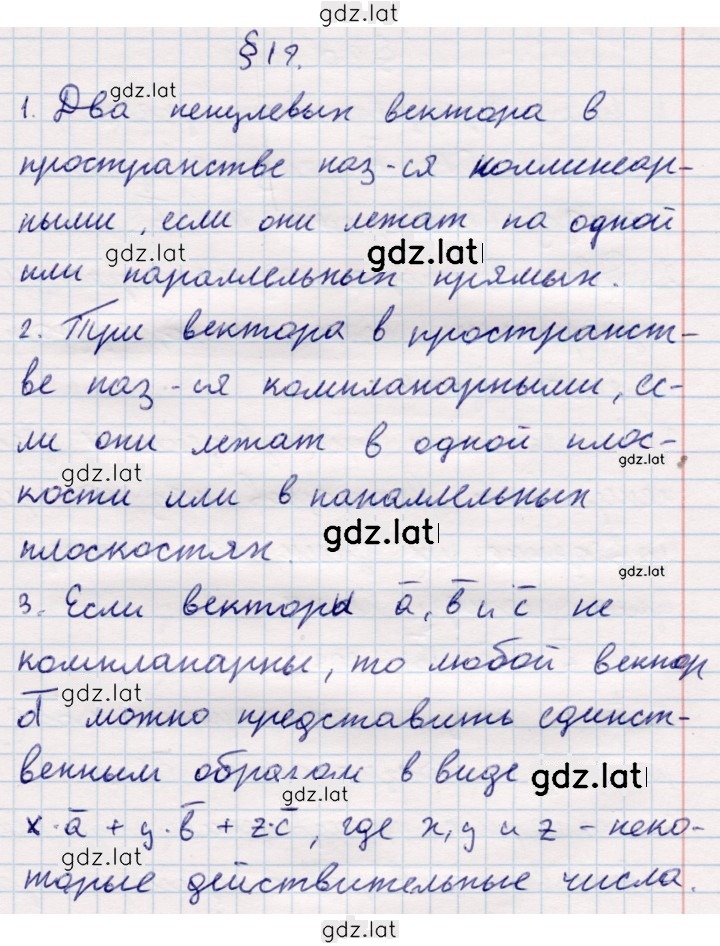 gdz.lat
§19.
gdz.lat
1. Два ненулевых вектора в
пространстве наз-ся коллинеар-
ными, если они лежат на одной
gdz.lat
gdz.lat
или параллельных прямых.
2. Три вектора в пространст-
ве наз-ся компланарными, ес-
ли они лежат в одной плос-
gdz.lat
gdz.lat
кости или в параллельных
gdz.lat
плоскостях.
gdz.lat
3. Если вектора a̅, b̅ и c̅ не
компланарны, то любой вектор
gdz.lat
d̅ можно представить единст-
венным образом в виде
gdz.lat
gdz.lat
x·a̅ + y·b̅ + z·c̅, где x, y и z – неко-
gdz.lat
торые действительные числа.
gdz.lat